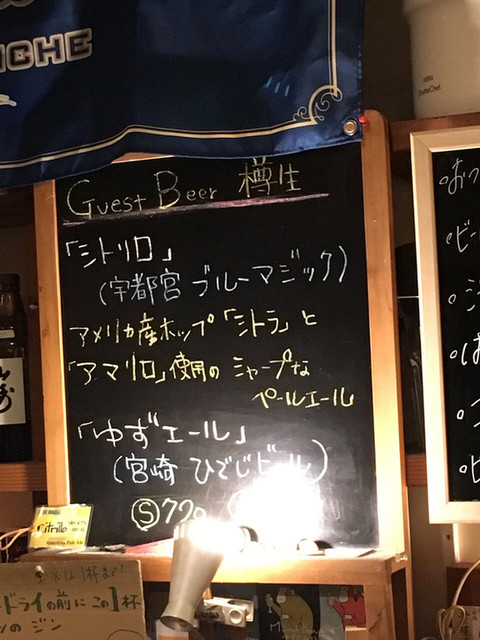 Guest Beer 樽生
「シトリロ」
(宇都宮 ブルーマジック)
アメリカ産ホップ「シトラ」と
「アマリロ」使用の シャープな
ペールエール
「ゆずエール」
(宮崎 ひでじビール)
Ⓢ770
Citrillo
ドライの前にこの1杯